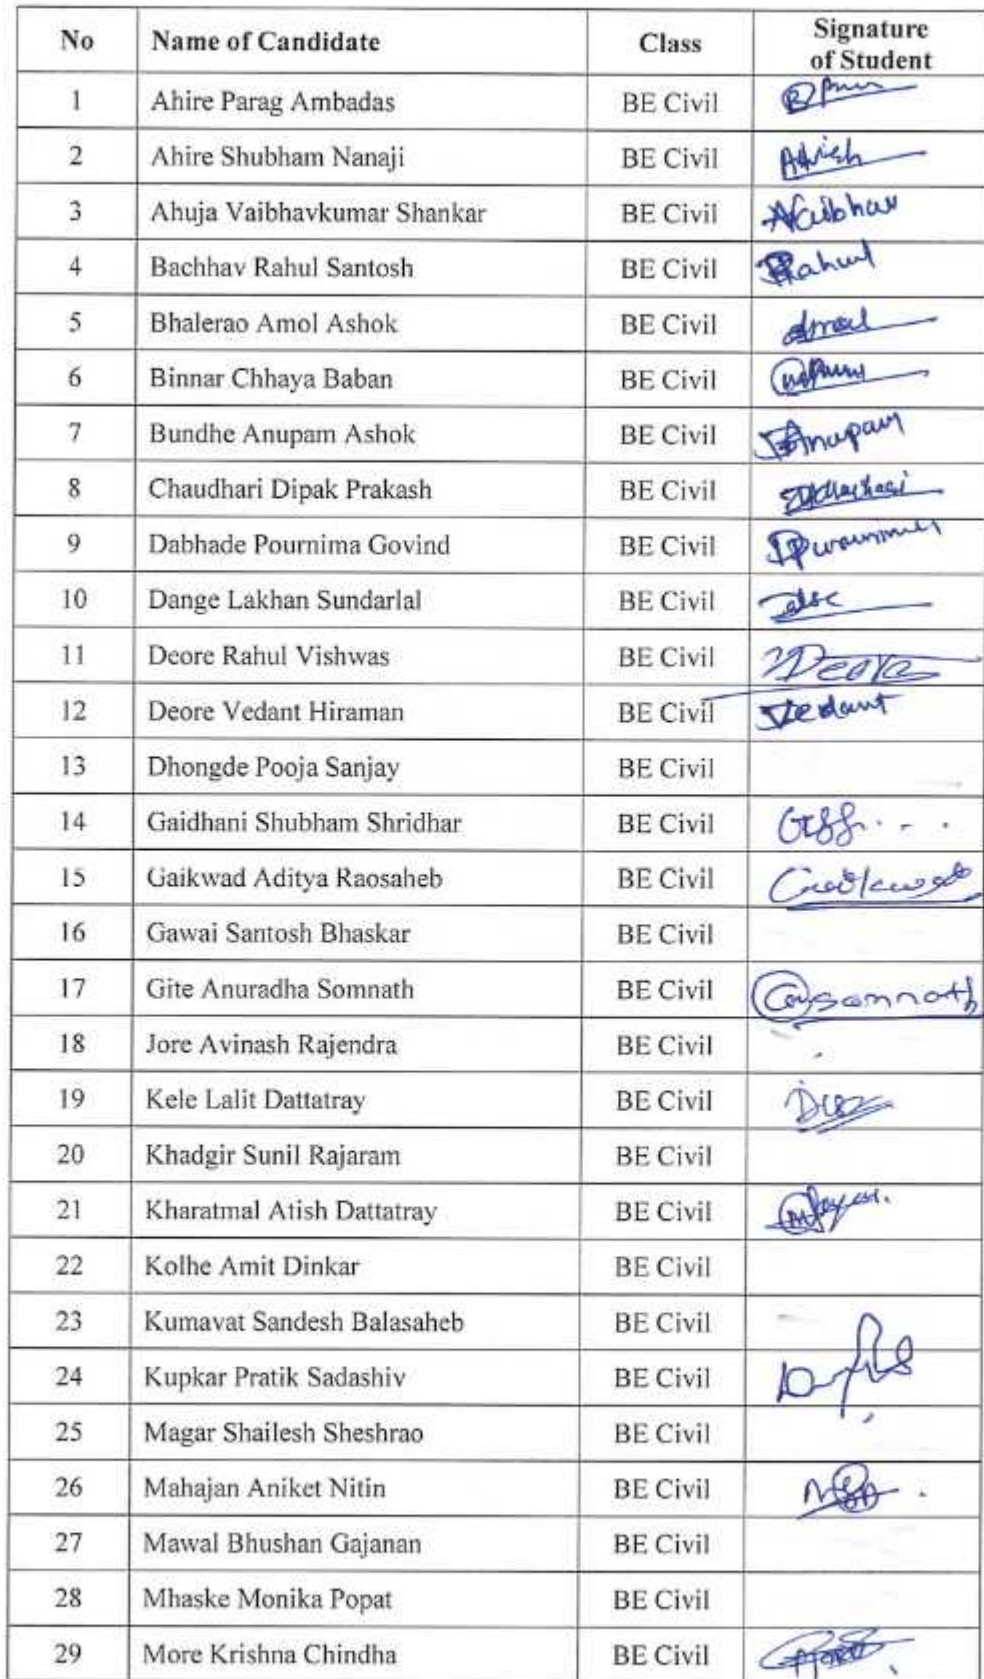 No Name of Candidate Class Signature of Student
1 Ahire Parag Ambadas BE Civil
2 Ahire Shubham Nanaji BE Civil
3 Ahuja Vaibhavkumar Shankar BE Civil
4 Bachhav Rahul Santosh BE Civil Rahul
5 Bhalerao Amol Ashok BE Civil
6 Binnar Chhaya Baban BE Civil
7 Bundhe Anupam Ashok BE Civil Anupam
8 Chaudhari Dipak Prakash BE Civil
9 Dabhade Pournima Govind BE Civil
10 Dange Lakhan Sundarlal BE Civil
11 Deore Rahul Vishwas BE Civil
12 Deore Vedant Hiraman BE Civil Vedant
13 Dhongde Pooja Sanjay BE Civil
14 Gaidhani Shubham Shridhar BE Civil
15 Gaikwad Aditya Raosaheb BE Civil
16 Gawai Santosh Bhaskar BE Civil
17 Gite Anuradha Somnath BE Civil
18 Jore Avinash Rajendra BE Civil
19 Kele Lalit Dattatray BE Civil
20 Khadgir Sunil Rajaram BE Civil
21 Kharatmal Atish Dattatray BE Civil
22 Kolhe Amit Dinkar BE Civil
23 Kumavat Sandesh Balasaheb BE Civil
24 Kupkar Pratik Sadashiv BE Civil
25 Magar Shailesh Sheshrao BE Civil
26 Mahajan Aniket Nitin BE Civil
27 Mawal Bhushan Gajanan BE Civil
28 Mhaske Monika Popat BE Civil
29 More Krishna Chindha BE Civil